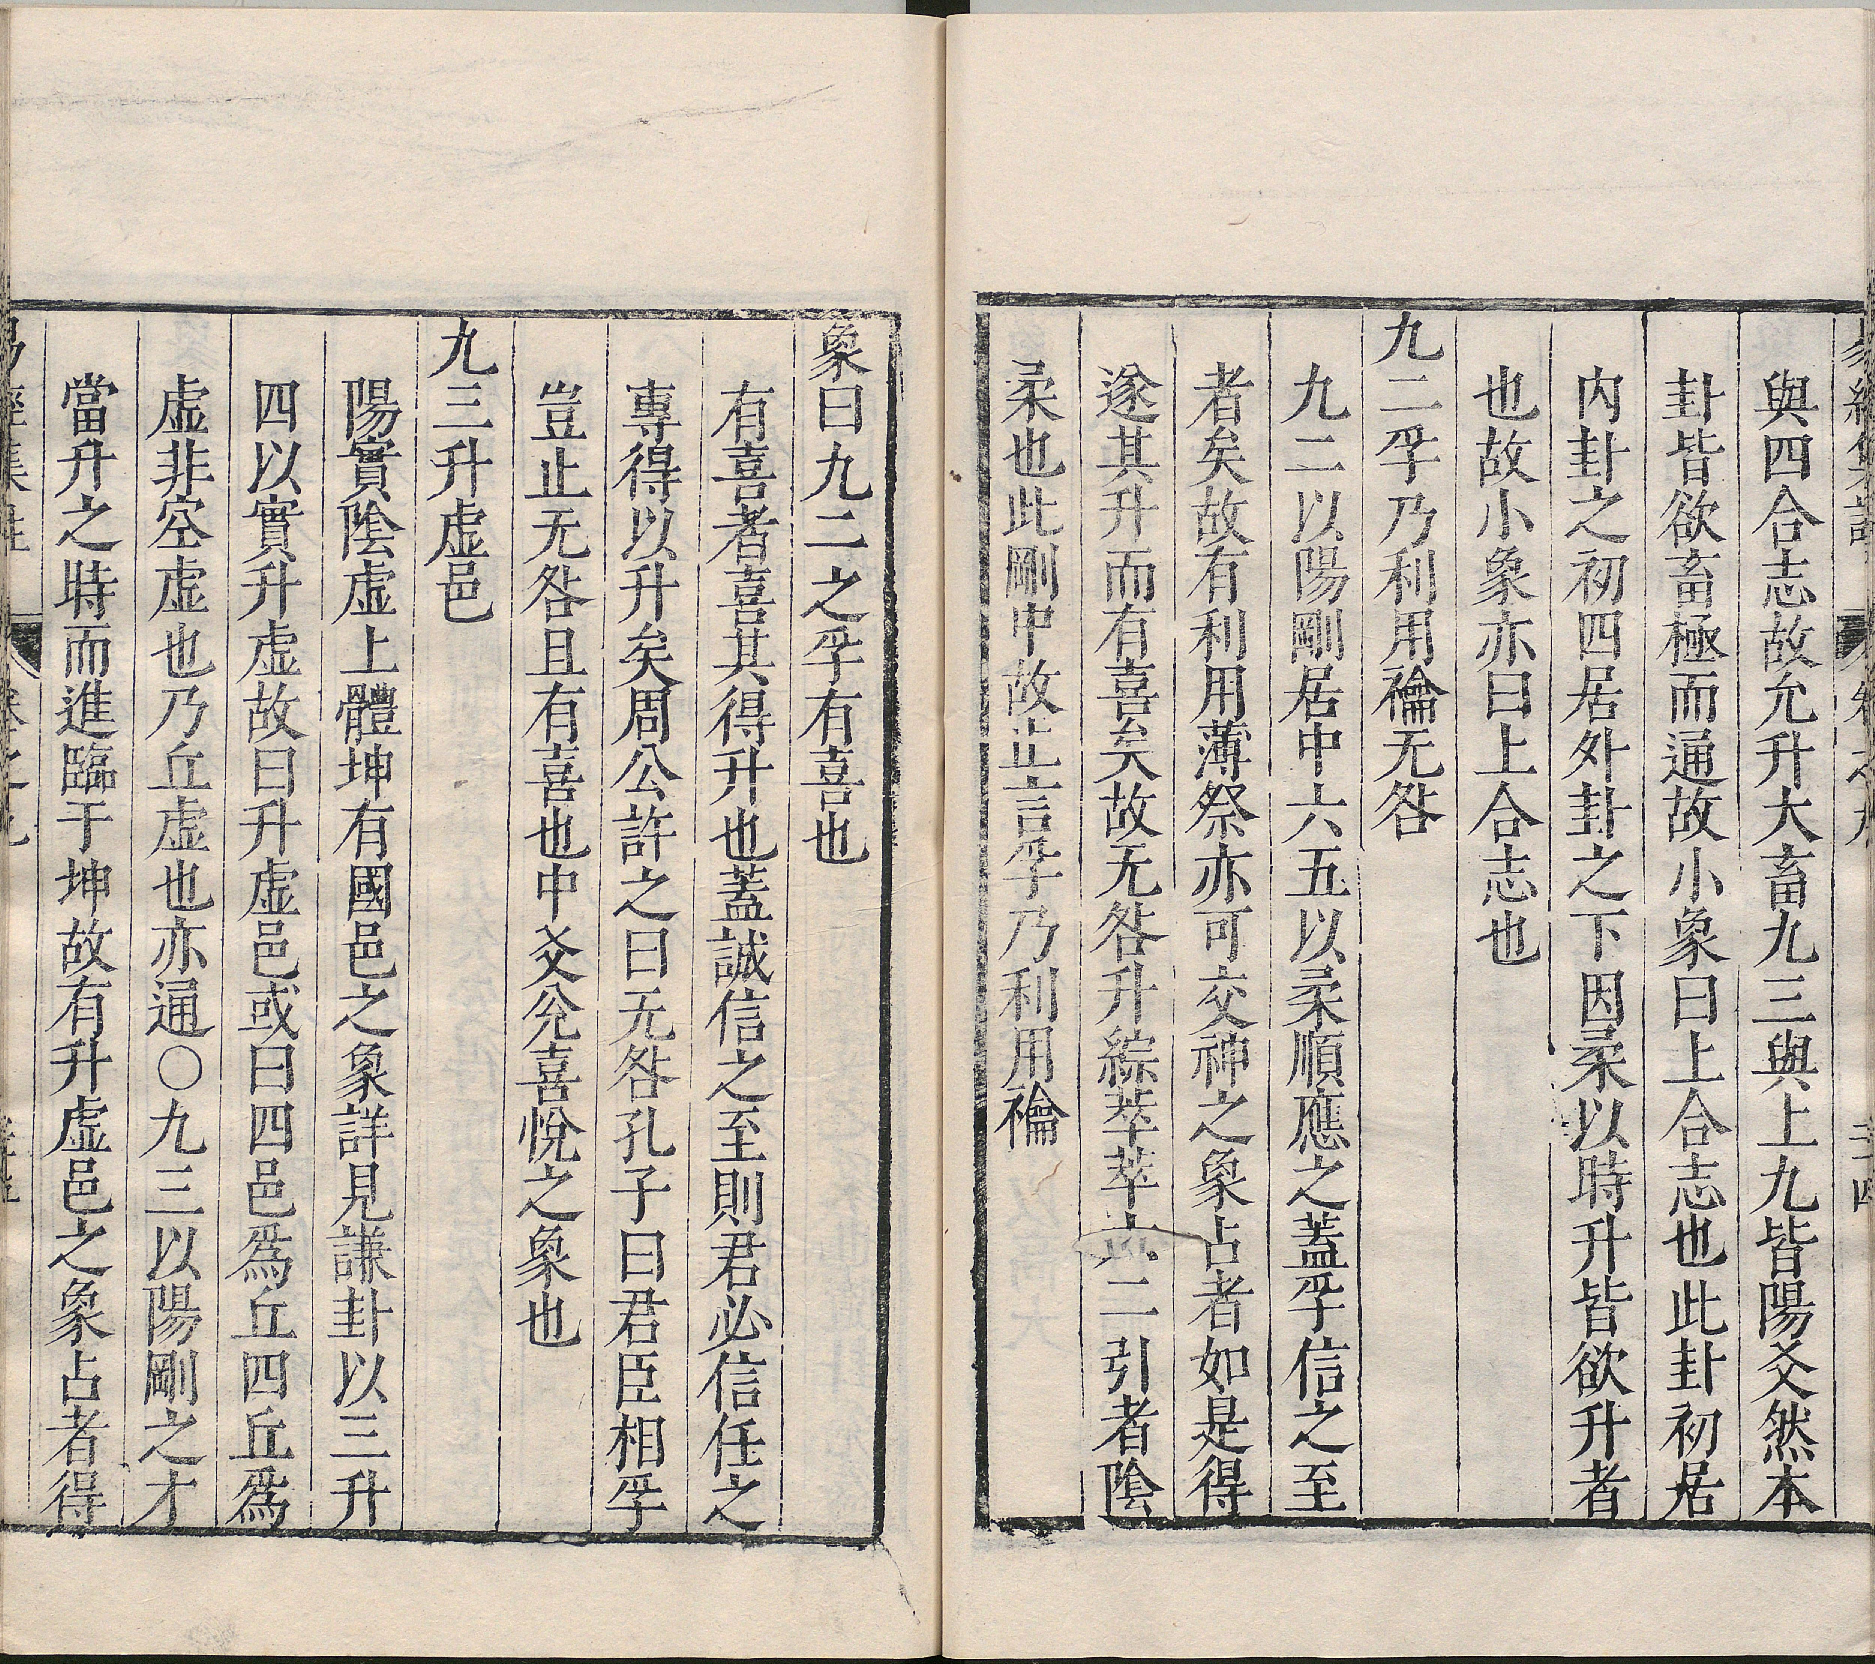 與四合志故允升大畜九三與上九皆陽爻然本
卦皆欲畜極而通故小象曰上合志也此卦初居
內卦之初四居外卦之下因柔以時升皆欲升者
也故小象亦曰上合志也
九二孚乃利用禴无咎
九二以陽剛居中六五以柔順應之蓋孚信之至
者矣故有利用薄祭亦可交神之象占者如是得
遂其升而有喜矣故无咎升綜萃萃六二引者陰
柔也此剛中故止言孚乃利用禴
象曰九二之孚有喜也
有喜者喜其得升也蓋誠信之至則君必信任之
專得以升矣周公許之曰无咎孔子曰君臣相孚
豈止无咎且有喜也中爻兊喜悅之象也
九三升虛邑
陽實陰虛上體坤有國邑之象詳見謙卦以三升
四以實升虛故曰升虛邑或曰四邑爲丘四丘爲
虛非空虛也乃丘虛也亦通○九三以陽剛之才
當升之時而進臨于坤故有升虛邑之象占者得
易經集註 卷之九